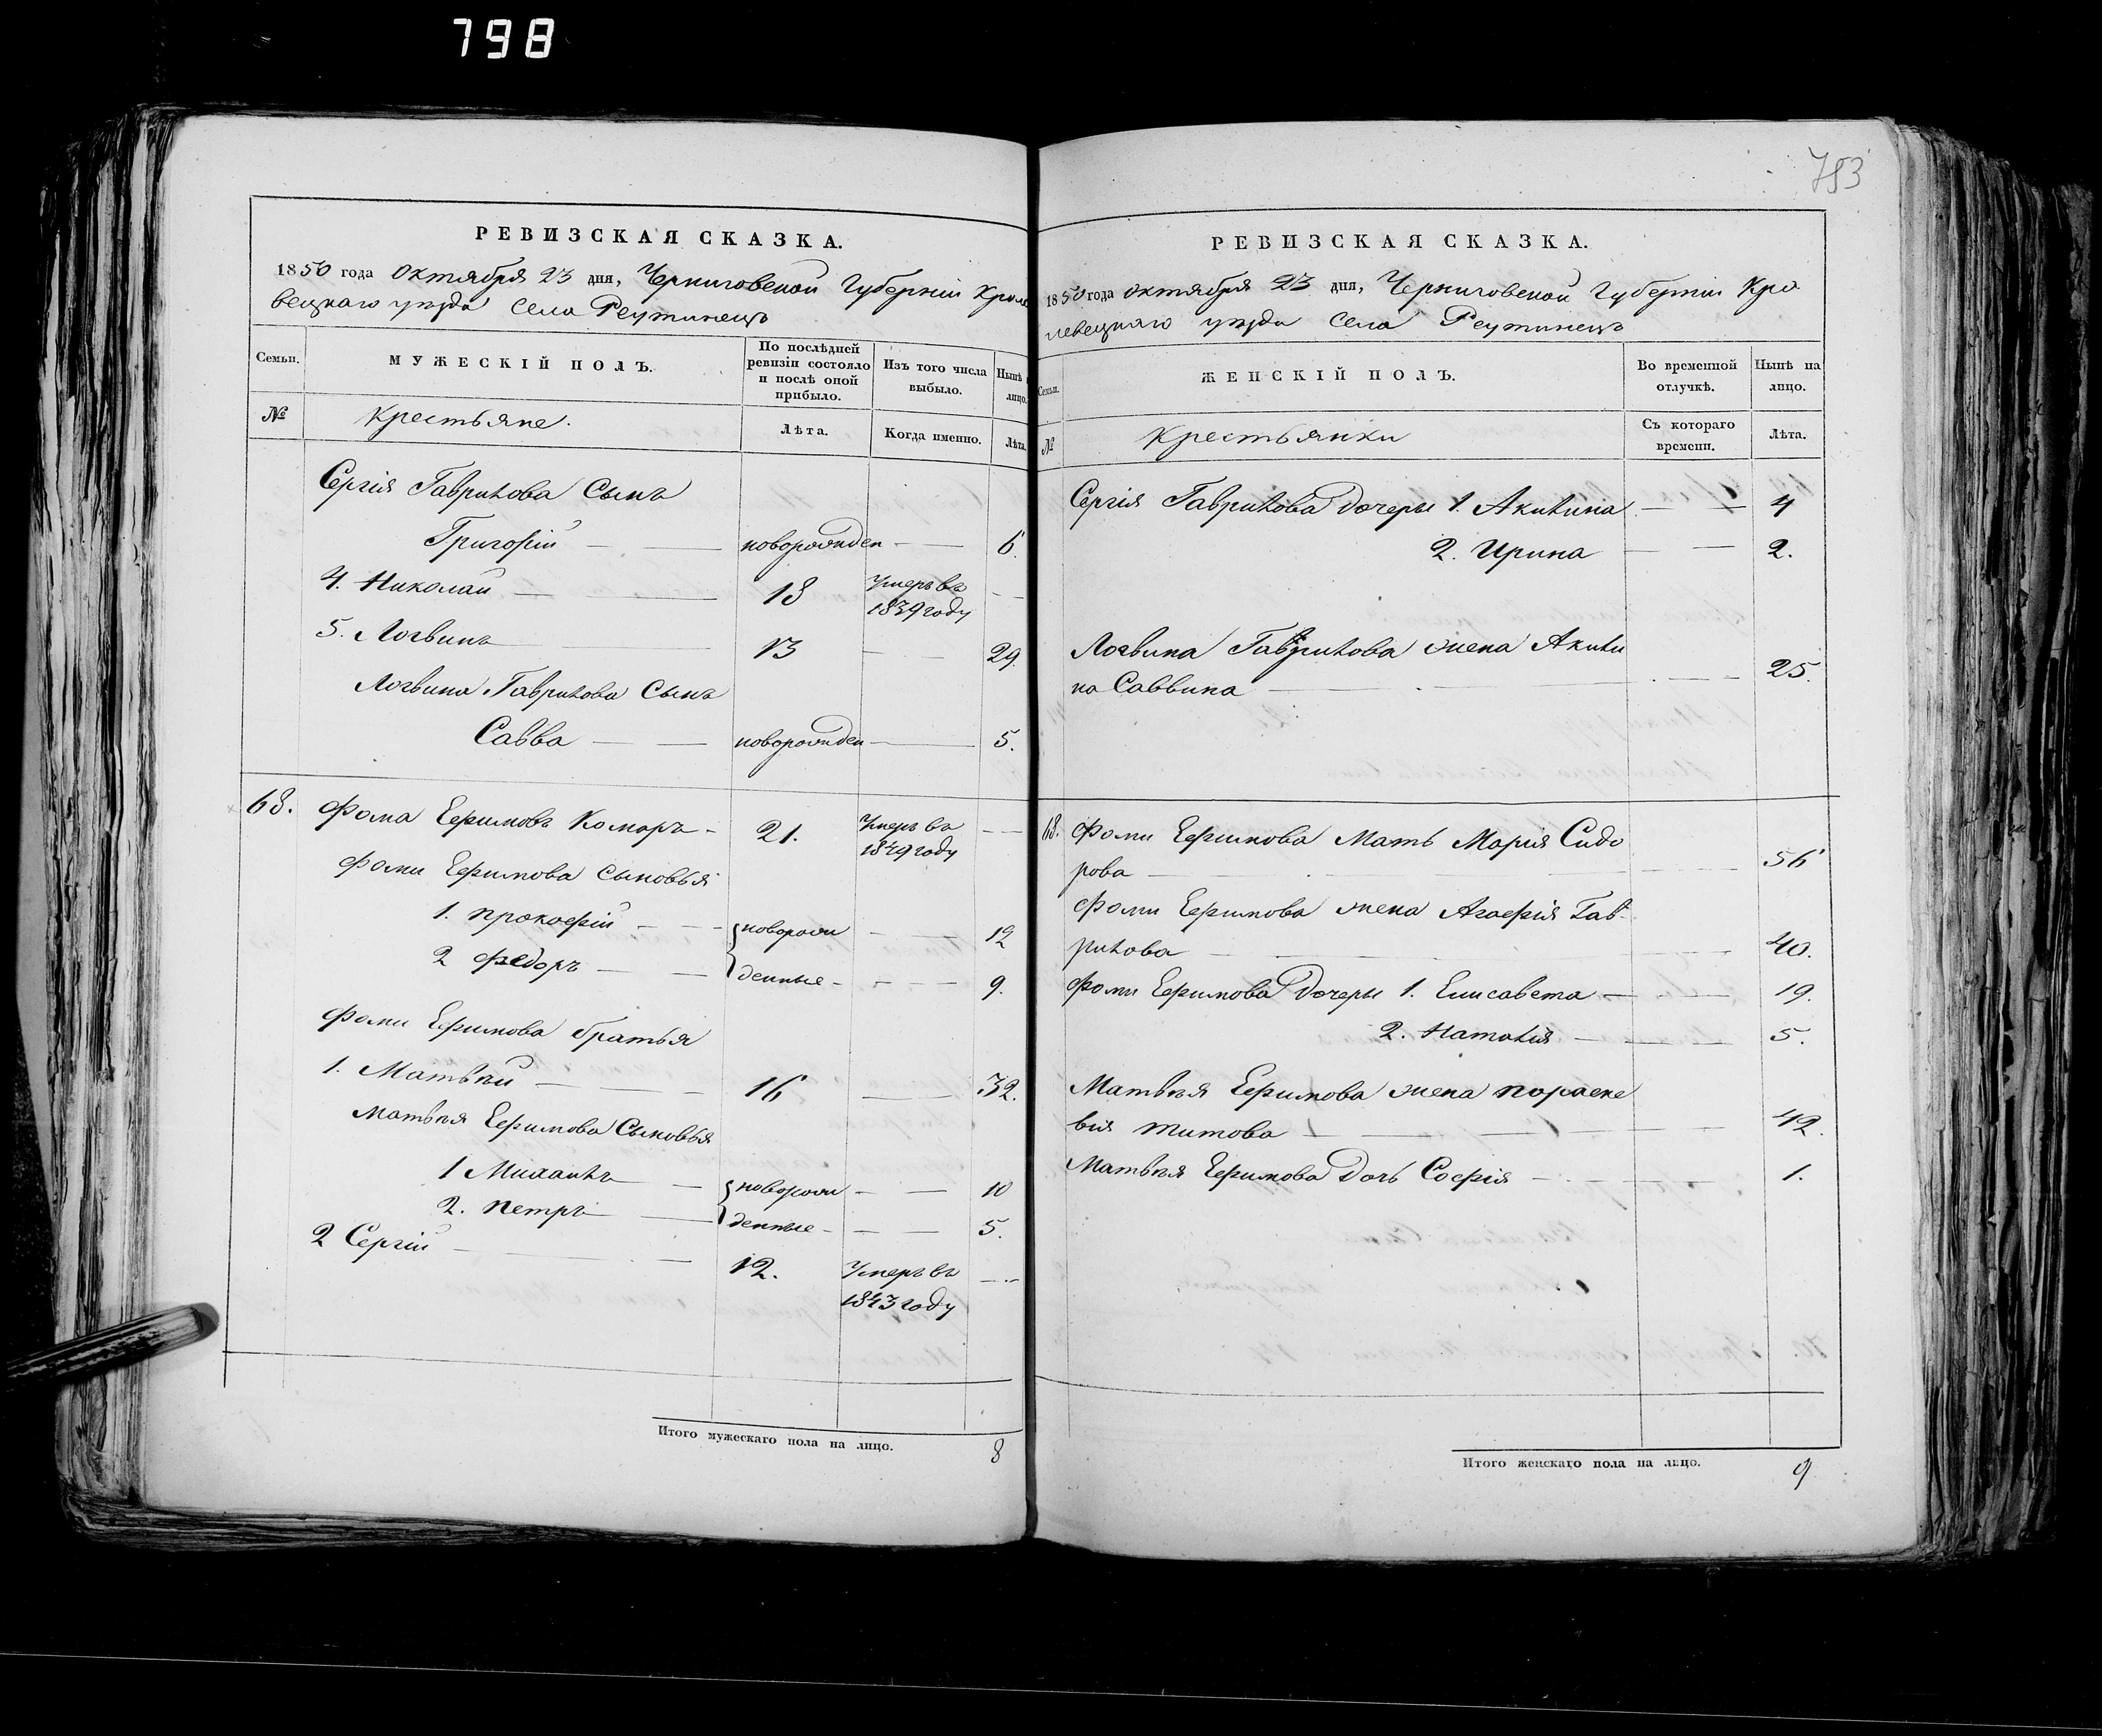 798
РЕВИЗСКАЯ СКАЗКА.
1850 года Октября 23 дня, Черниговской Губерніи Кроле
вецкаго уѣзда Села Реутинецъ
Семьи.
МУЖЕСКІЙ ПОЛЪ.
По послѣдней ревизіи состояло и послѣ оной прибыло.
Изъ того числа выбыло.
Нынѣ лицо.
№
Крестьяне.
Лѣта.
Когда именно.
Лѣта.
Сергія Гаврилова Сынъ
Григорій — — новорожден — — 6.
4. Николай — — 18 Умеръ въ 1839 году — —
5. Логвинъ — 13 — — 29.
Логвина Гаврилова Сынъ
Савва — — новорожден — 5.
68. Фома Ефимовъ Комаръ - 21. Умеръ въ 1849 году — —
Фомы Ефимова Сыновья
1. Прокофій — — новорож — — 12
2 Федоръ — — денные - — — 9.
Фомы Ефимова братья
1. Матвѣй — — 16 — — 32.
Матвѣя Ефимова Сыновья
1 Михаилъ — новорож — — 10
2. Петръ — денные - — — 5.
2 Сергій — — 12. Умеръ въ 1843 году — —
Итого мужескаго пола на лицо. 8
783
РЕВИЗСКАЯ СКАЗКА.
1850 года Октября 23 дня, Черниговской Губерніи Кро
левецкаго уѣзда Села Реутинецъ
Семьи.
ЖЕНСКІЙ ПОЛЪ.
Во временной отлучкѣ.
Нынѣ на лицо.
№
Крестьянки
Съ котораго времени.
Лѣта.
Сергія Гаврилова Дочери 1. Акилина — — 4
2. Ирина — — 2.
Логвина Гаврилова жена Акили
на Саввина — — — 25.
68. Фомы Ефимова Мать Марія Сидо
рова — — 56
Фомы Ефимова жена Агафія Гав-
рилова — — 40.
Фомы Ефимова Дочери 1. Елисавета — — 19.
2. Наталія — — 5.
Матвѣя Ефимова жена Параске
вія Титова — — 42.
Матвѣя Ефимова Дочь Софія — — 1.
Итого женскаго пола на лицо. 9